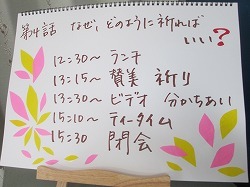 第4話 なぜ、どのように祈れば
いい?
12:30〜 ランチ
13:15〜 賛美 祈り
13:30〜 ビデオ 分かちあい
15:10〜 ティータイム
15:30 閉会